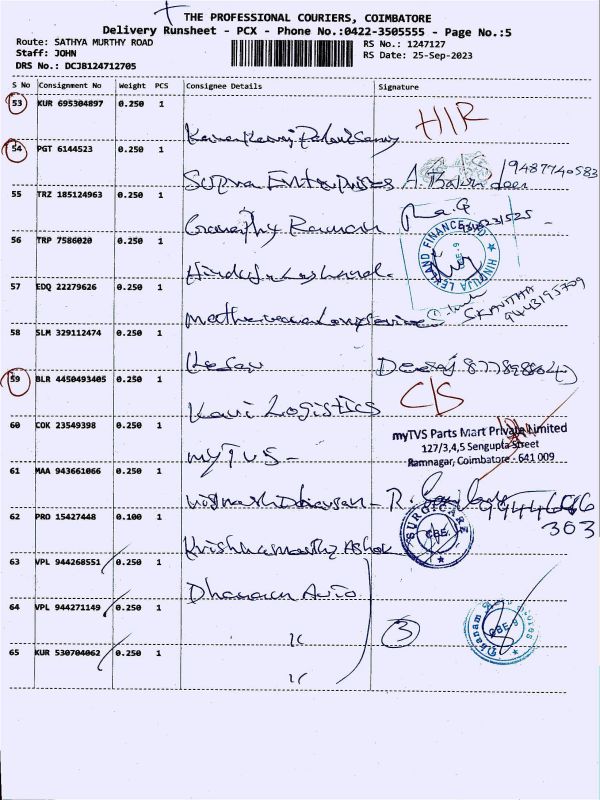 THE PROFESSIONAL COURIERS, COIMBATORE
Delivery Runsheet - PCX - Phone No.:0422-3505555 - Page No.:5
Route: SATHYA MURTHY ROAD
RS No.: 1247127
Staff: JOHN
RS Date: 25-Sep-2023
DRS No.: DCJB124712705
S No Consignment No Weight PCS Consignee Details Signature
53 KUR 695304897 0.250 1
HIR
54 PGT 6144523 0.250 1
Supra Enterprises
9487740583
55 TRZ 185124963 0.250 1
Ganapathy Raman
56 TRP 7586020 0.250 1
HINDUJA LEYLAND FINANCE
57 EDQ 22279626 0.250 1
9443195709
58 SLM 329112474 0.250 1
Kesav
59 BLR 4450493405 0.250 1
Kavi Logistics
C/S
60 COK 23549398 0.250 1
myTVS
myTVS Parts Mart Private Limited
127/3,4,5 Sengupta Street
Ramnagar, Coimbatore - 641 009
61 MAA 943661066 0.250 1
62 PRO 15427448 0.100 1
Krishnamoorthy Ashok
SURGICARE
CBE.
63 VPL 944268551 0.250 1
Dhanam Auto
64 VPL 944271149 0.250 1
"
3
Dhanam
CBE-9
65 KUR 530704062 0.250 1
"